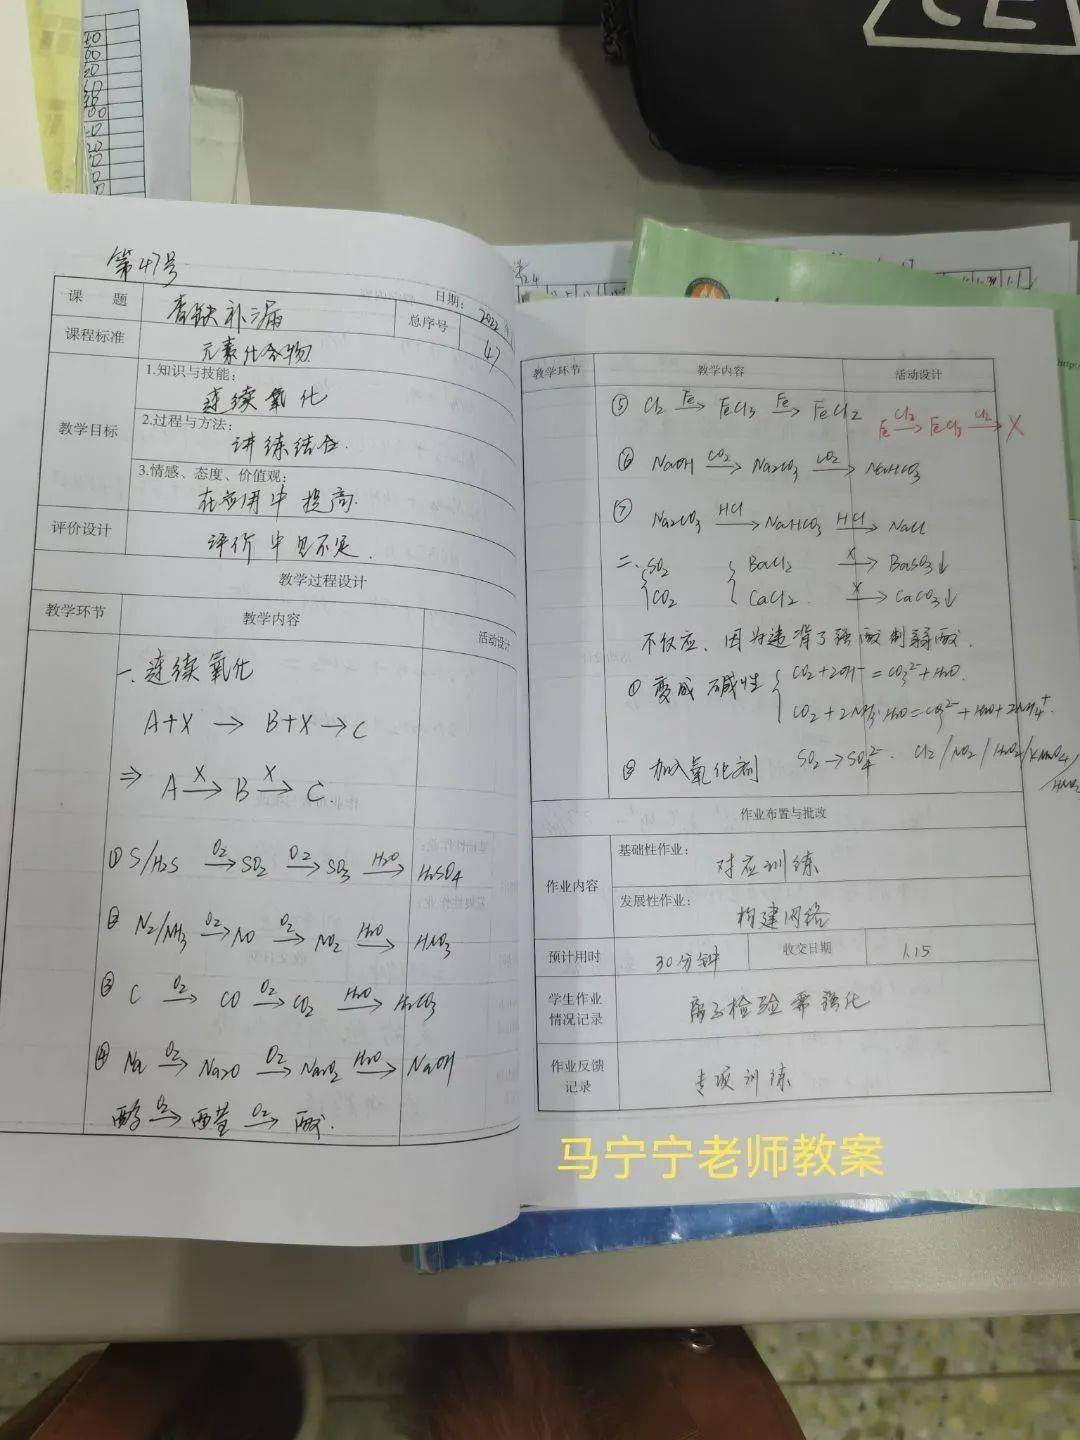 第47号
日期: 2022
课 题 查缺补漏 总序号 47
课程标准 元素化合物
教学目标
1.知识与技能:
连续氧化
2.过程与方法:
讲练结合.
3.情感、态度、价值观:
在应用中提高.
评价设计 评价中见不足.
教学过程设计
教学环节 教学内容 活动设计
一.连续氧化
A+X → B+X → C
⇒ A —X→ B —X→ C
① S/H2S —O2→ SO2 —O2→ SO3 —H2O→ H2SO4
② N2/NH3 —O2→ NO —O2→ NO2 —H2O→ HNO3
③ C —O2→ CO —O2→ CO2 —H2O→ H2CO3
④ Na —O2→ Na2O —O2→ Na2O2 —H2O→ NaOH
醇 —O2→ 醛 —O2→ 酸.
教学环节 教学内容 活动设计
⑤ Cl2 —Fe→ FeCl3 —Fe→ FeCl2
Fe —Cl2→ FeCl3 —Cl2→ X
⑥ NaOH —CO2→ Na2CO3 —CO2→ NaHCO3
⑦ Na2CO3 —HCl→ NaHCO3 —HCl→ NaCl
二、{SO2 {BaCl2 —X→ BaSO3↓
CO2 CaCl2 —X→ CaCO3↓
不反应. 因为违背了强酸制弱酸.
① 变成碱性 { CO2+2OH⁻=CO3²⁻+H2O.
CO2+2NH3·H2O=CO3²⁻+H2O+2NH4⁺
② 加入氧化剂 SO2→SO4²⁻. Cl2/NO2/H2O2/KMnO4/
HNO3
作业布置与批改
作业内容
基础性作业: 对应训练
发展性作业: 构建网络
预计用时 30分钟 收交日期 1.15
学生作业
情况记录
离子检验需强化
作业反馈
记录
专项训练
马宁宁老师教案